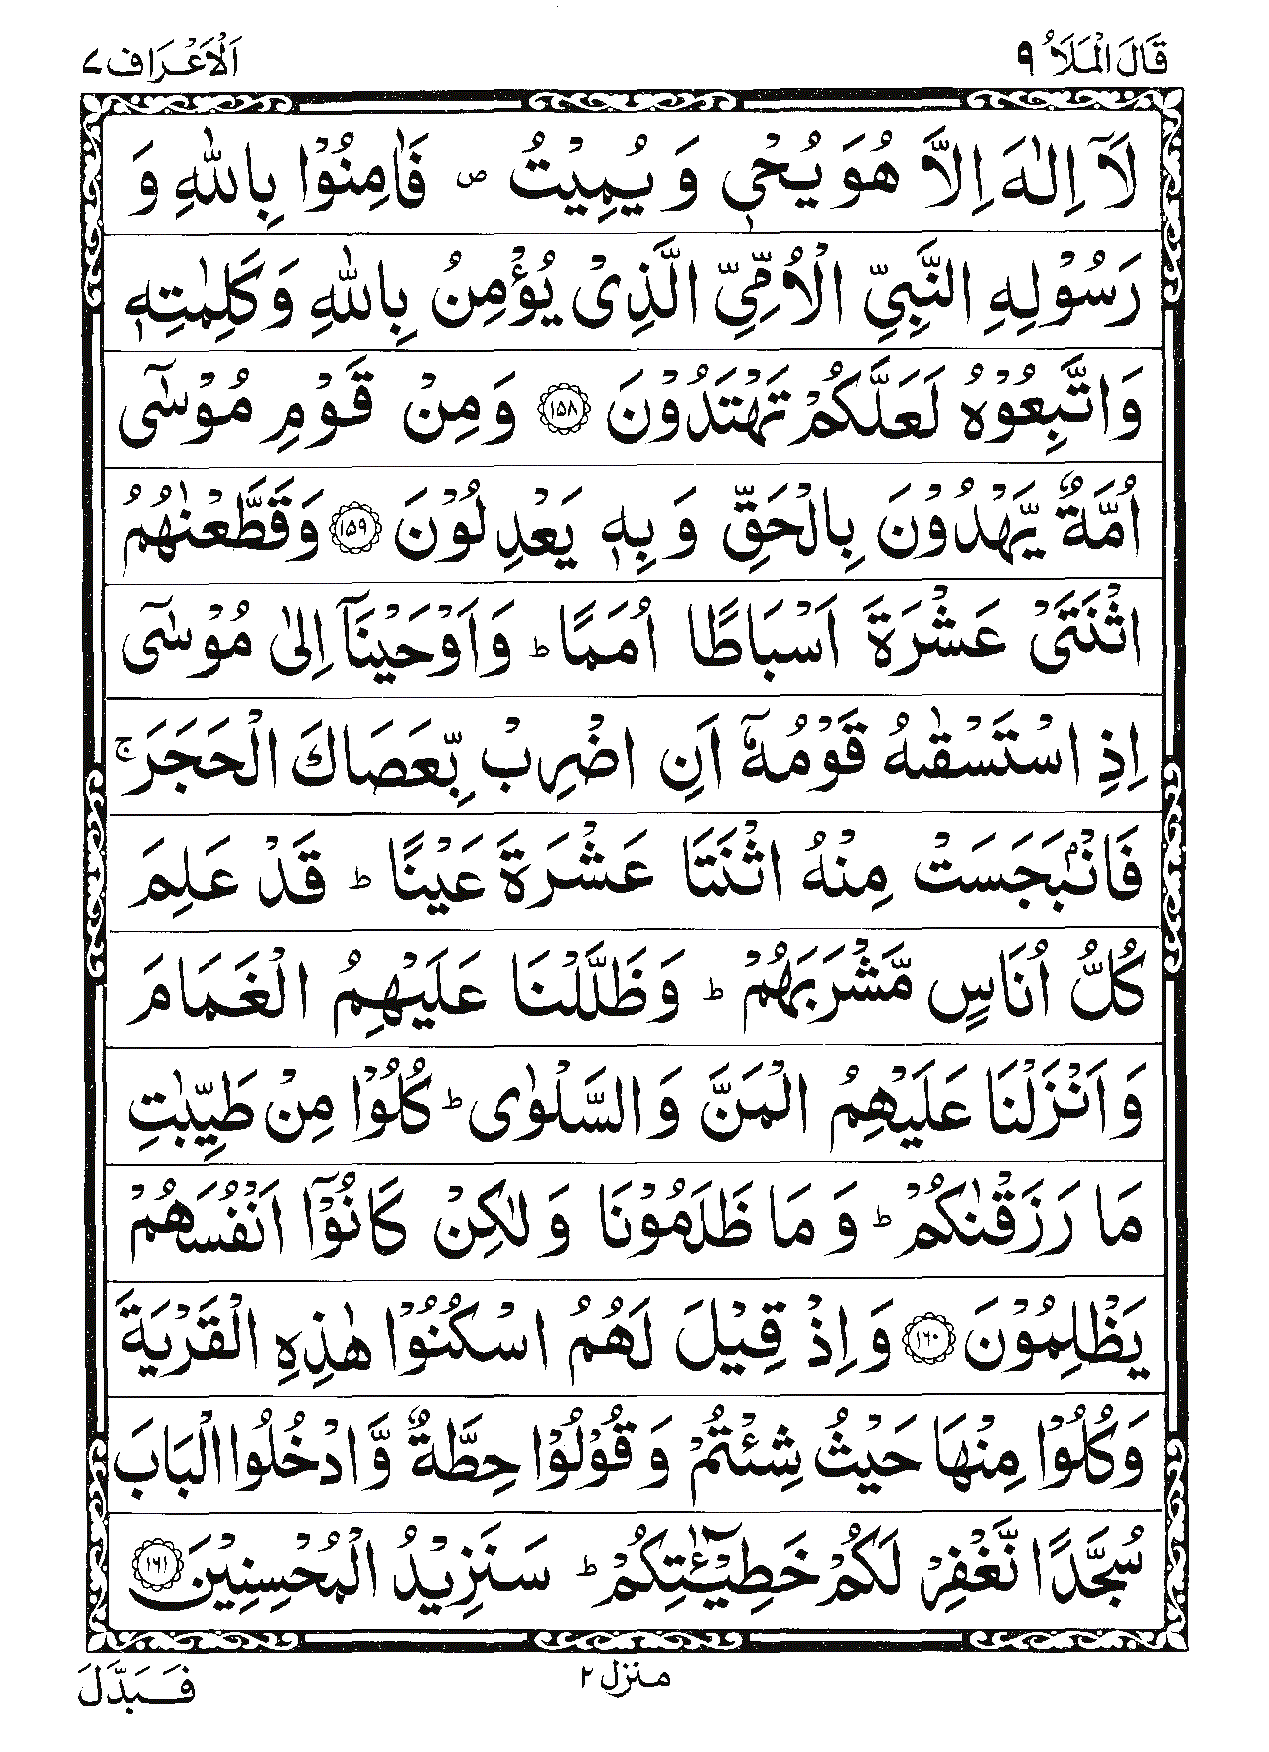 قَالَ الْمَلَاُ ٩
اَلْاَعْرَاف ٧
لَآ اِلٰهَ اِلَّا هُوَ يُحْيٖ وَ يُمِيْتُ ۪ فَاٰمِنُوْا بِاللّٰهِ وَ
رَسُوْلِهِ النَّبِيِّ الْاُمِّيِّ الَّذِيْ يُؤْمِنُ بِاللّٰهِ وَ كَلِمٰتِهٖ
وَاتَّبِعُوْهُ لَعَلَّكُمْ تَهْتَدُوْنَ ﴿۱۵۸﴾ وَ مِنْ قَوْمِ مُوْسٰٓى
اُمَّةٌ يَّهْدُوْنَ بِالْحَقِّ وَ بِهٖ يَعْدِلُوْنَ ﴿۱۵۹﴾ وَقَطَّعْنٰهُمُ
اثْنَتَيْ عَشْرَةَ اَسْبَاطًا اُمَمًا ؕ وَاَوْحَيْنَاۤ اِلٰى مُوْسٰٓى
اِذِ اسْتَسْقٰىهُ قَوْمُهٗۤ اَنِ اضْرِبْ بِّعَصَاكَ الْحَجَرَ ۚ
فَانْۢبَجَسَتْ مِنْهُ اثْنَتَا عَشْرَةَ عَيْنًا ؕ قَدْ عَلِمَ
كُلُّ اُنَاسٍ مَّشْرَبَهُمْ ؕ وَظَلَّلْنَا عَلَيْهِمُ الْغَمَامَ
وَ اَنْزَلْنَا عَلَيْهِمُ الْمَنَّ وَ السَّلْوٰى ؕ كُلُوْا مِنْ طَيِّبٰتِ
مَا رَزَقْنٰكُمْ ؕ وَ مَا ظَلَمُوْنَا وَ لٰكِنْ كَانُوْۤا اَنْفُسَهُمْ
يَظْلِمُوْنَ ﴿۱۶۰﴾ وَ اِذْ قِيْلَ لَهُمُ اسْكُنُوْا هٰذِهِ الْقَرْيَةَ
وَكُلُوْا مِنْهَا حَيْثُ شِئْتُمْ وَ قُوْلُوْا حِطَّةٌ وَّ ادْخُلُوا الْبَابَ
سُجَّدًا نَّغْفِرْ لَكُمْ خَطِيْٓـٰٔتِكُمْ ؕ سَنَزِيْدُ الْمُحْسِنِيْنَ ﴿۱۶۱﴾
منزل ٢
فَبَدَّلَ